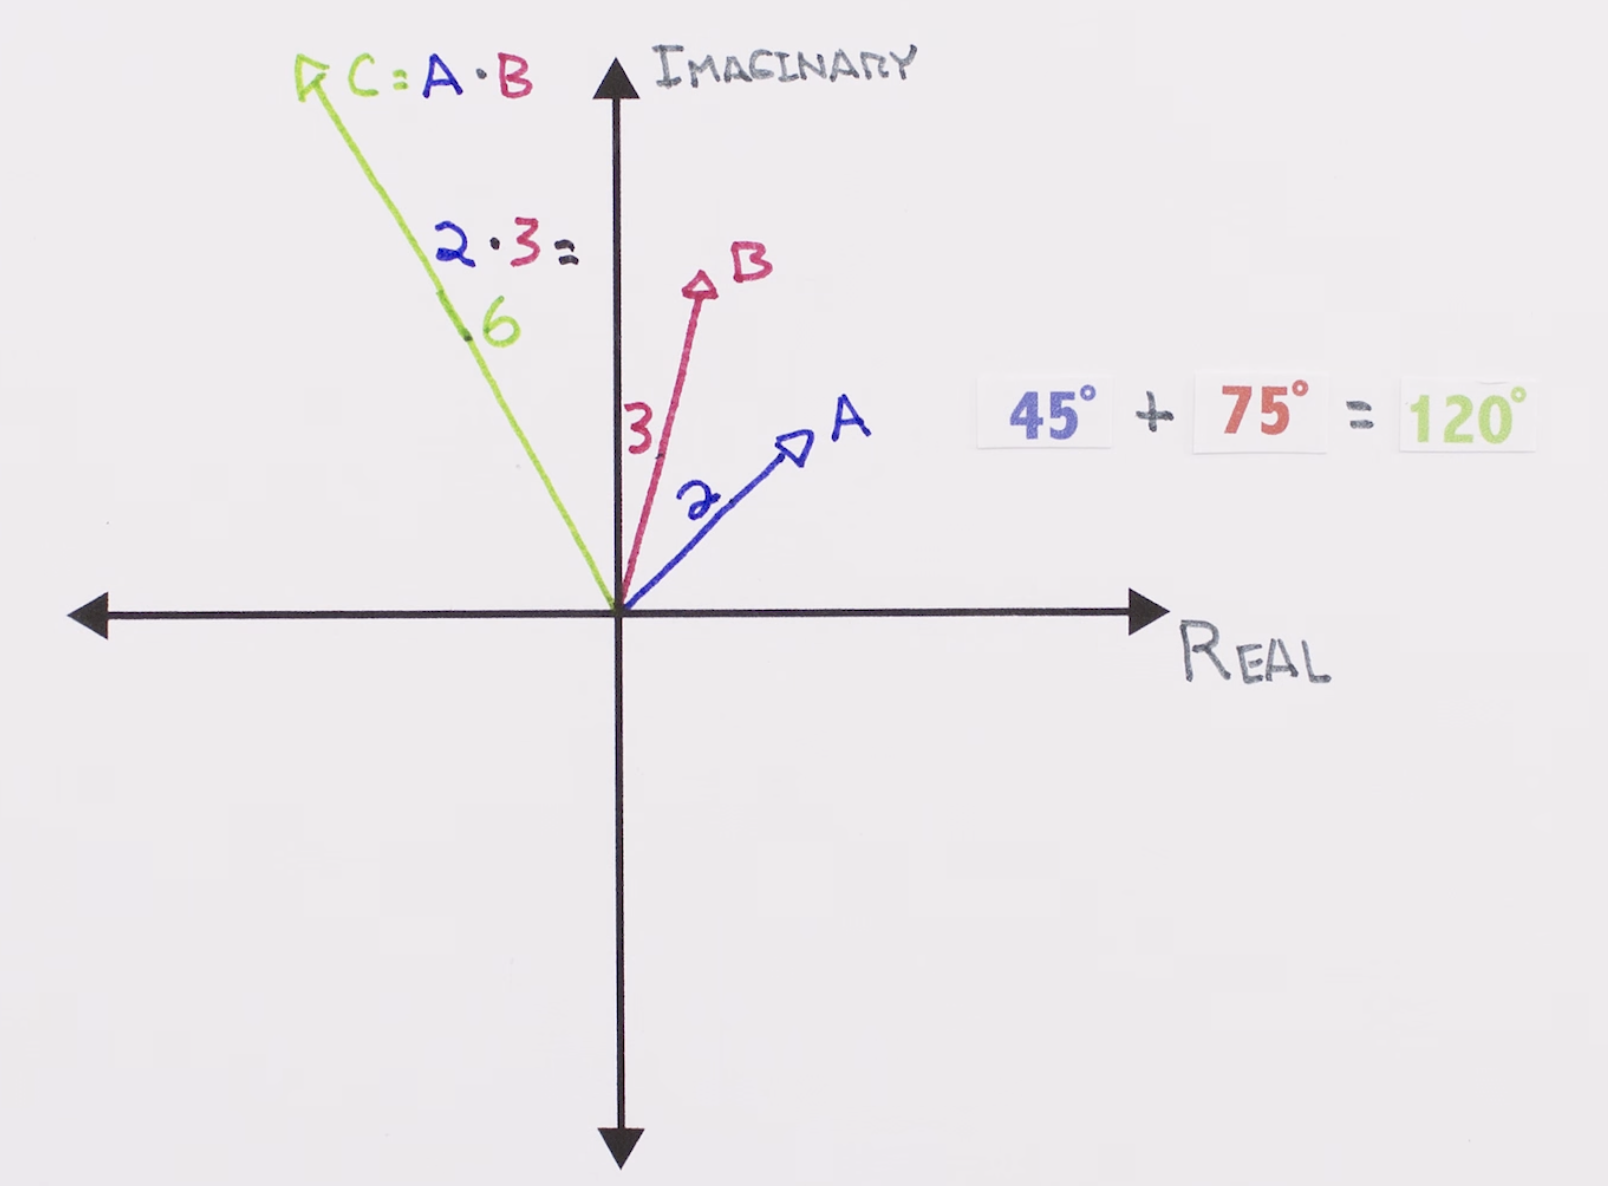 C=A·B
IMAGINARY
2·3=
6
B
3
A
2
45° + 75° = 120°
REAL